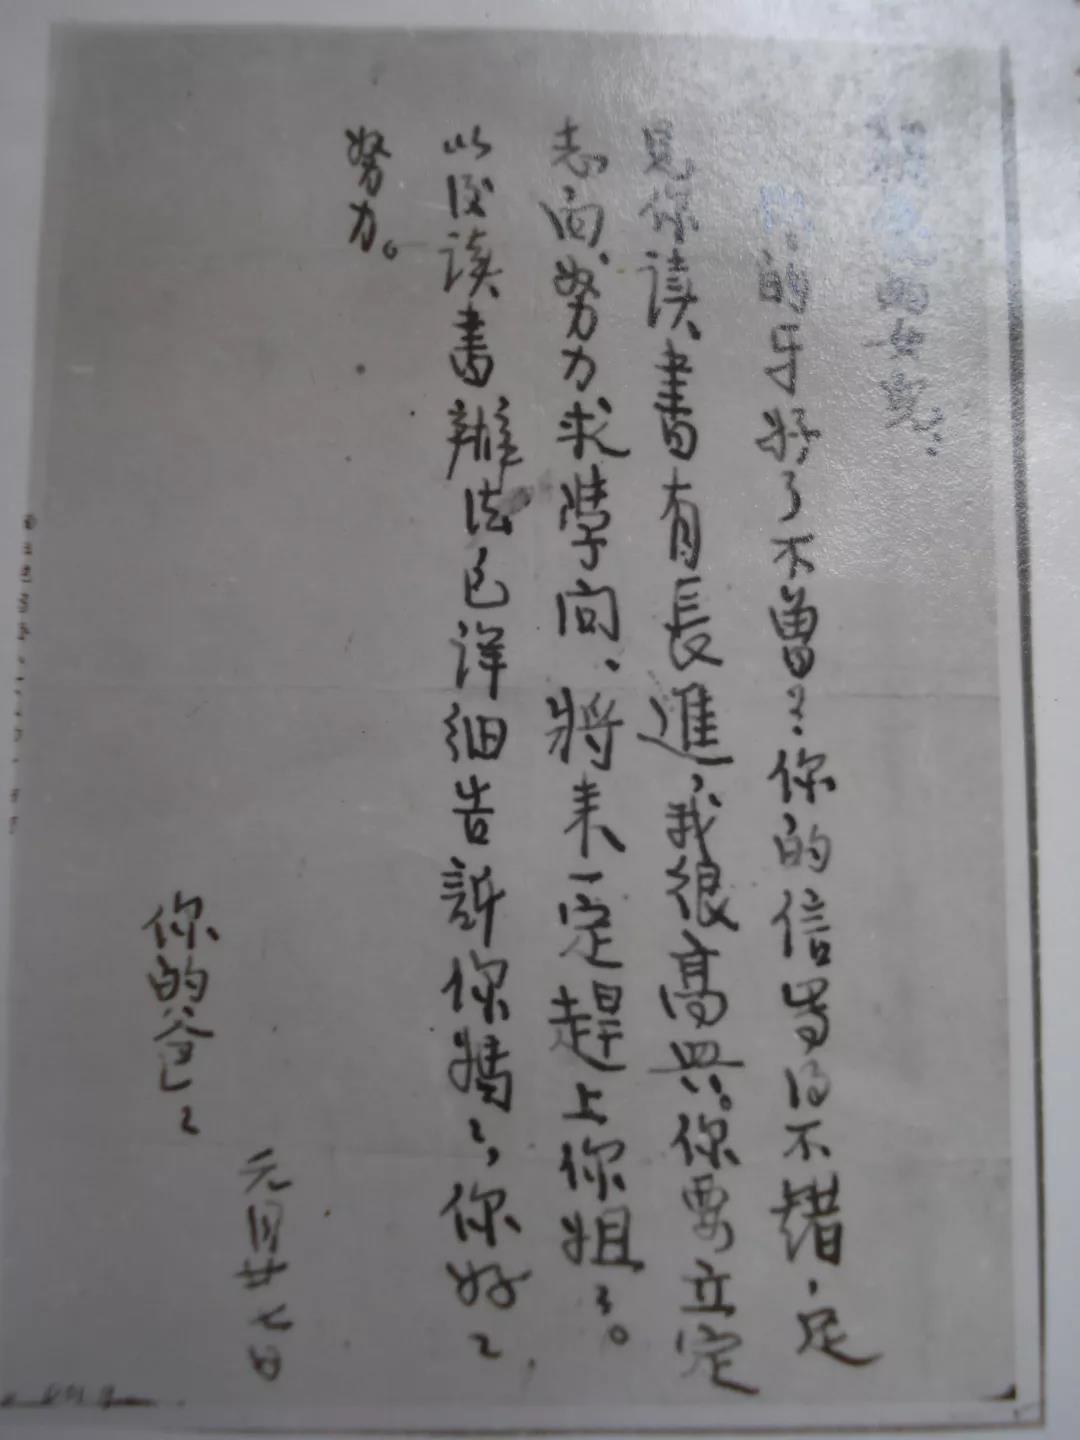 的女兒：
你的牙好了不曾？你的信寫得不錯，足
見你读書有長進，我很高興。你要立定
志向，努力求學问，將来一定趕上你姐々。
以後读書辦法已详细告訴你媽々，你好々
努力。
你的爸々
元月廿七日